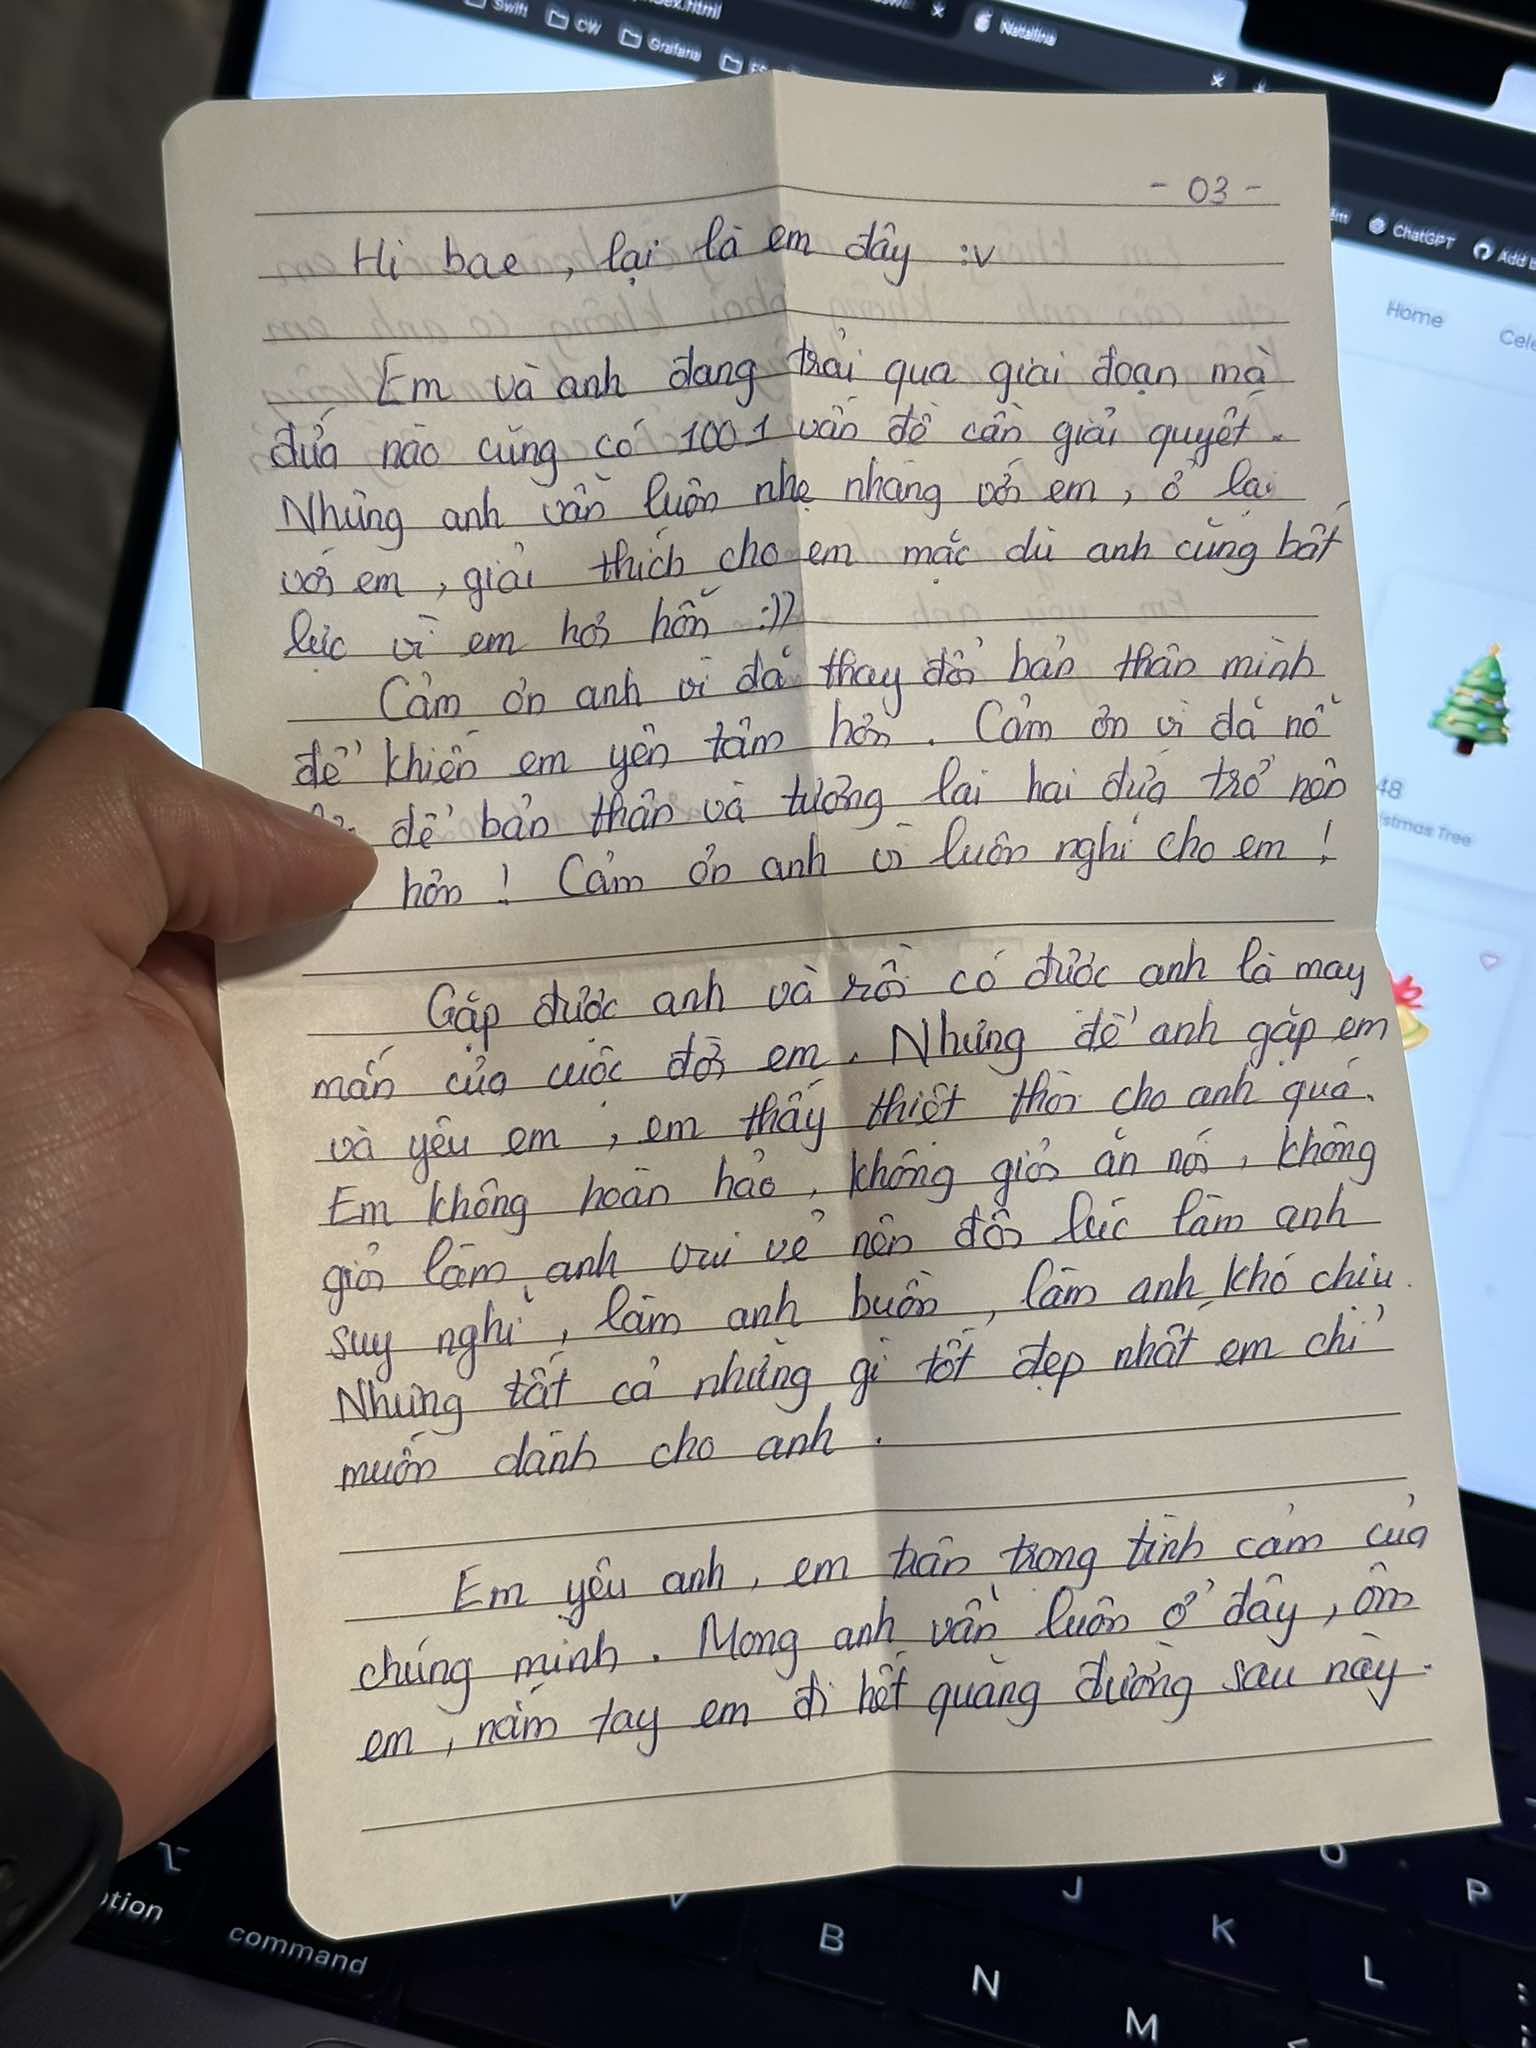 Swift
CW
Grafana
Natalina
ChatGPT
Home
- 03 -
Hi bae, lại là em đây :v
Em và anh đang trải qua giai đoạn mà
đứa nào cũng có 1001 vấn đề cần giải quyết.
Nhưng anh vẫn luôn nhẹ nhàng với em, ở lại
với em, giải thích cho em mặc dù anh cũng bất
lực vì em hơi hỗn :))
Cảm ơn anh vì đã thay đổi bản thân mình
để khiến em yên tâm hơn. Cảm ơn vì đã nỗ
để bản thân và tương lai hai đứa trở nên
hơn! Cảm ơn anh vì luôn nghĩ cho em!
Gặp được anh và rồi có được anh là may
mắn của cuộc đời em. Nhưng để anh gặp em
và yêu em, em thấy thiệt thòi cho anh quá.
Em không hoàn hảo, không giỏi ăn nói, không
giỏi làm anh vui vẻ nên đôi lúc làm anh
suy nghĩ, làm anh buồn, làm anh khó chịu.
Nhưng tất cả những gì tốt đẹp nhất em chỉ
muốn dành cho anh.
Em yêu anh, em trân trọng tình cảm của
chúng mình. Mong anh vẫn luôn ở đây, ôm
em, nắm tay em đi hết quãng đường sau này.
48
Tree
command
B
N
M
J
K
L
O
P